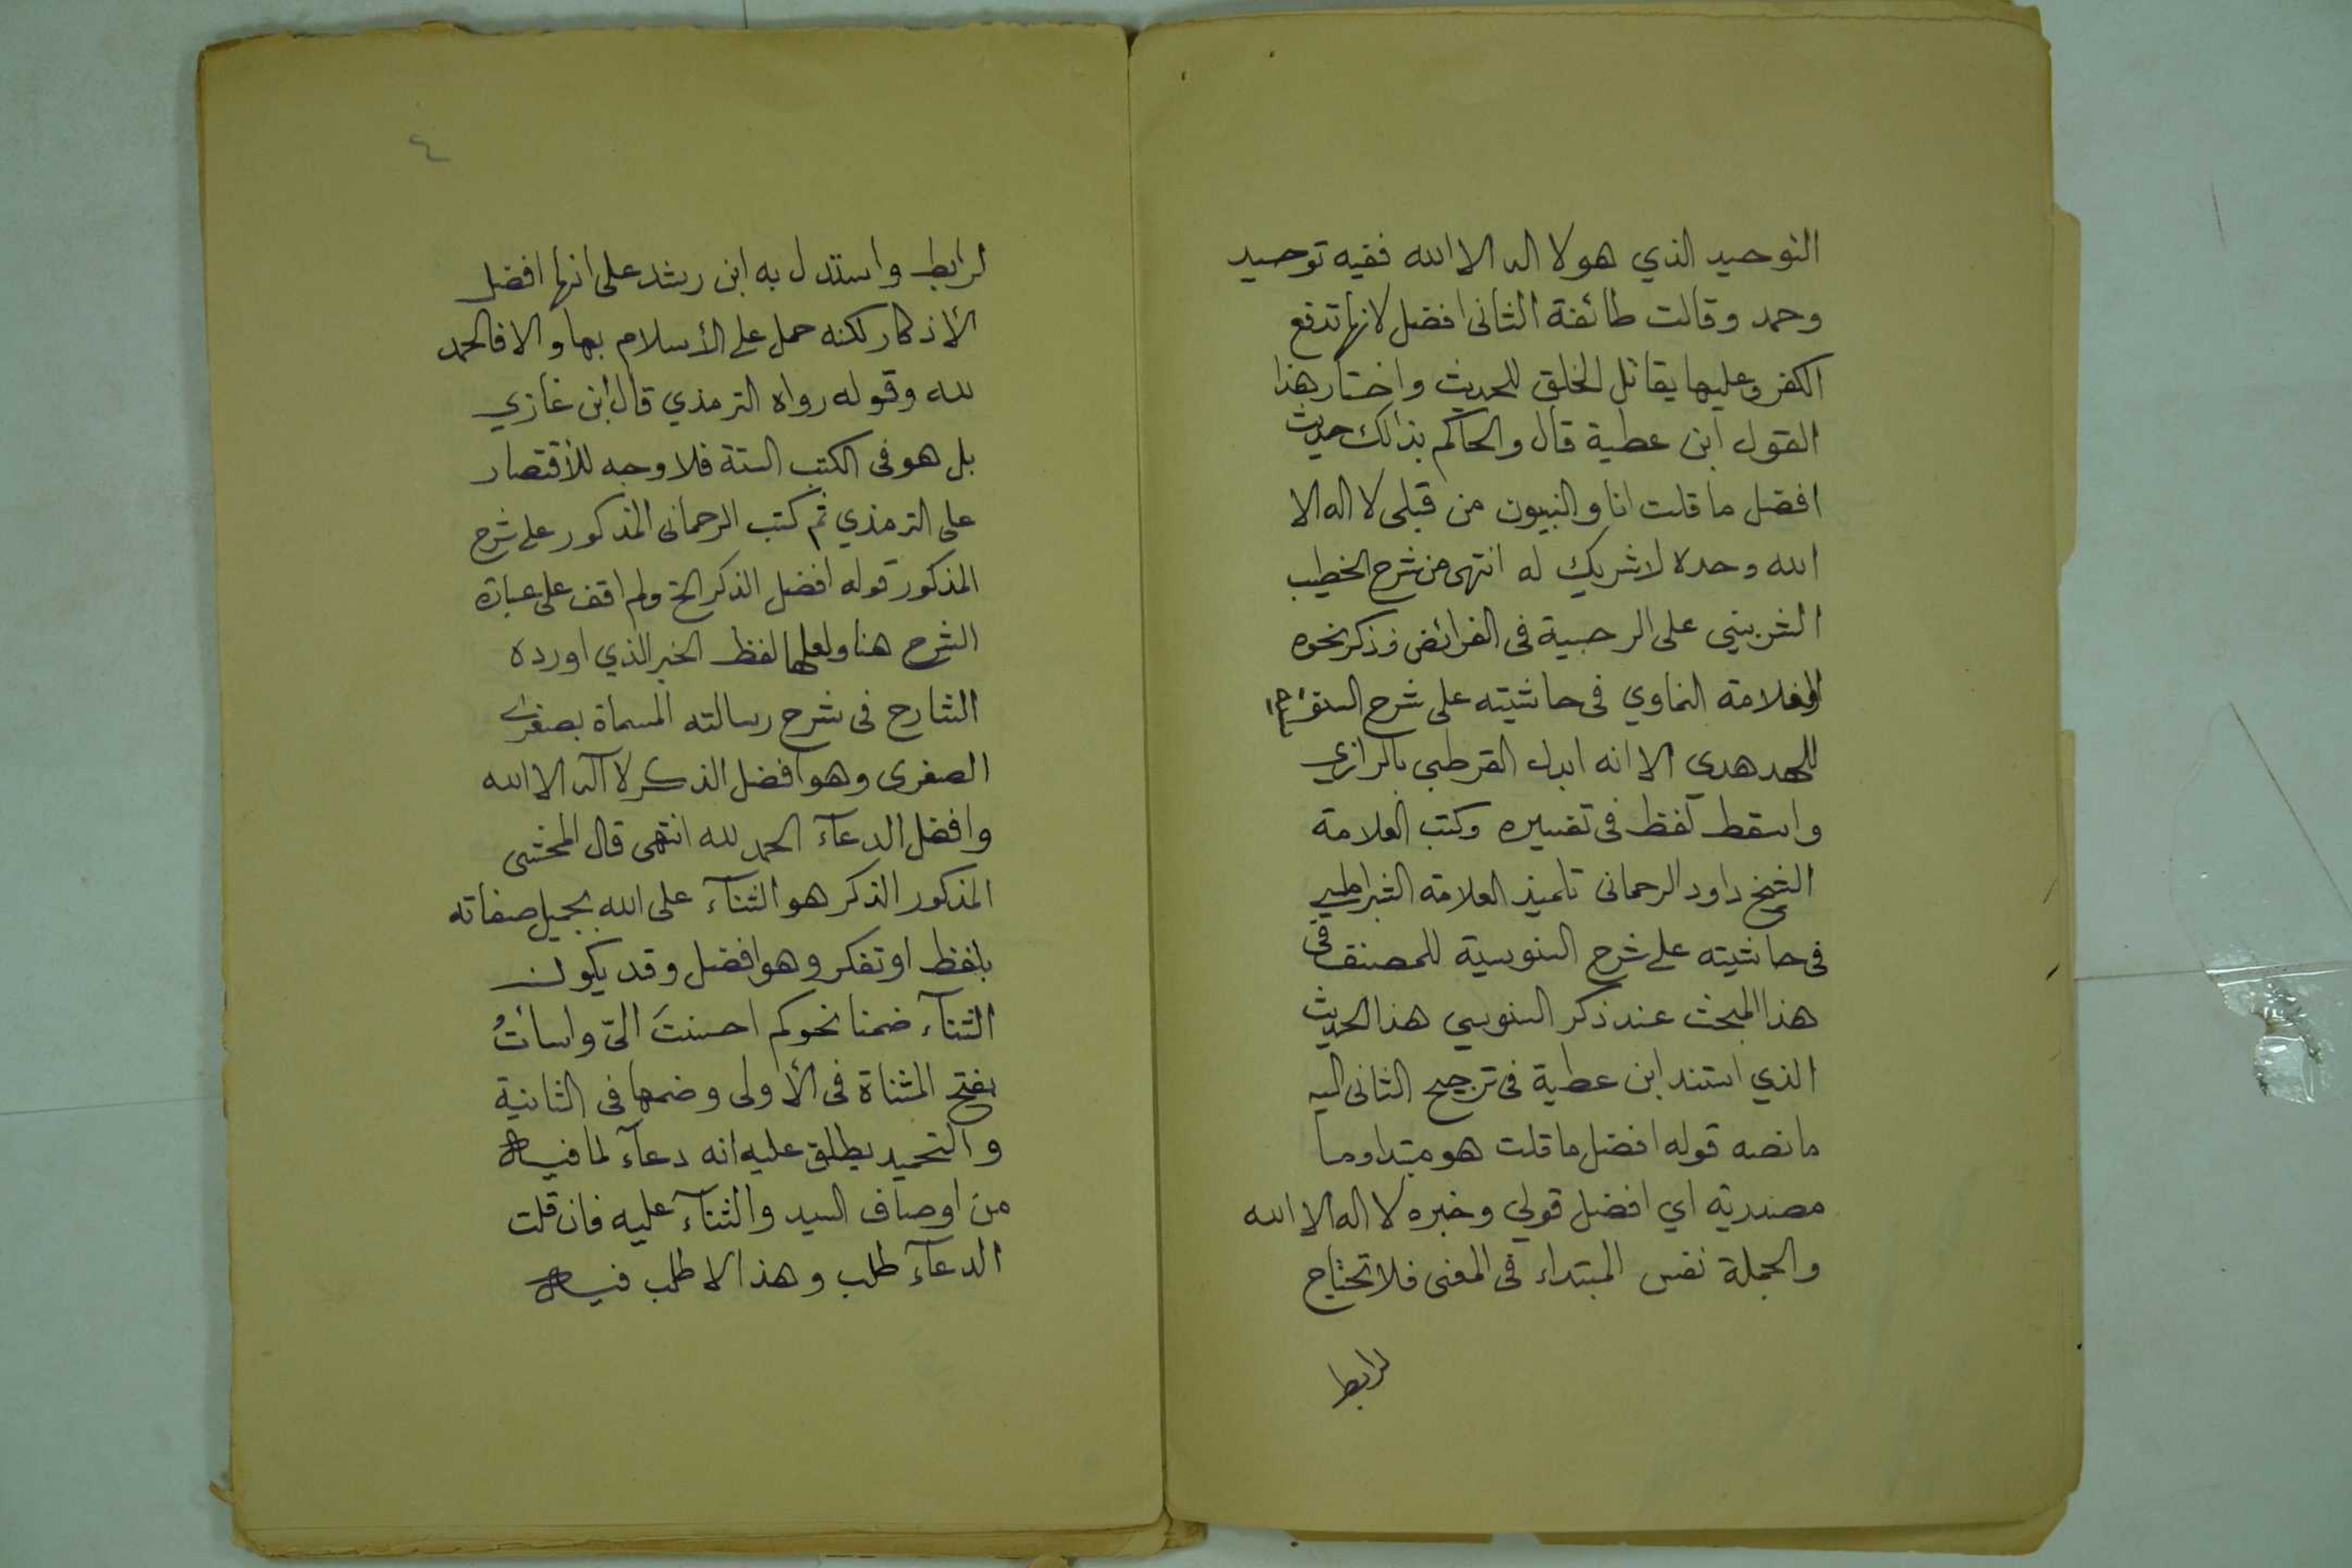 التوحيد الذي هو لا اله الا الله ففيه توحيد
وحمد وقالت طائفة الثانى افضل لانها تدفع
الكفر وعليها يقاتل الخلق للحديث واختار هذا
القول ابن عطية قال والحاكم بذالك حديث
افضل ما قلت انا والنبيون من قبلى لا اله الا
الله وحده لا شريك له انتهى من شرح الخطيب
الشربيني على الرحبية فى الفرائض وذكر نحوه
العلامة النماوي فى حاشيته على شرح
للهدهدي الا انه ابدل القرطبى بالرازي
واسقط لفظ فى تفسيره وكتب العلامة
الشيخ داود الرحمانى تلميذ العلامة
فى حاشيته على شرح السنوسية للمصنف فى
هذا المبحث عند ذكر السنوسي هذا الحديث
الذي استند ابن عطية فى ترجيح الثانى اليه
ما نصه قوله افضل ما قلت هو مبتدا وما
مصدرية اي افضل قولي وخبره لا اله الا الله
والجملة نفس المبتداء فى المعنى فلا تحتاج
لرابط
٤
لرابط واستدل به ابن رشد على انها افضل
الأذكار لكنه حمل على الأسلام بها والا فالحمد
لله وقوله رواه الترمذي قال ابن غازي
بل هو فى الكتب الستة فلا وجه للأقتصار
على الترمذي ثم كتب الرحمانى المذكور على شرح
المذكور قوله افضل الذكر الخ ولم اقف على عبارة
الشرح هنا ولعلها لفظ الخبر الذي اورده
الشارح فى شرح رسالته المسماة بصغرى
الصغرى وهو افضل الذكر لا آله الا الله
وافضل الدعآء الحمد لله انتهى قال المحشى
المذكور الذكر هو الثنآء على الله بجميل صفاته
بلفظ او تفكر وهو افضل وقد يكون
الثنآء ضمنا نحوكم احسنتَ اليّ واسأتُ
بفتح المثناة فى الأولى وضمها فى الثانية
والتحميد يطلق عليه انه دعآء لما فيه
من اوصاف السيد والثنآء عليه فان قلت
الدعآء طلب وهذا لا طلب فيه